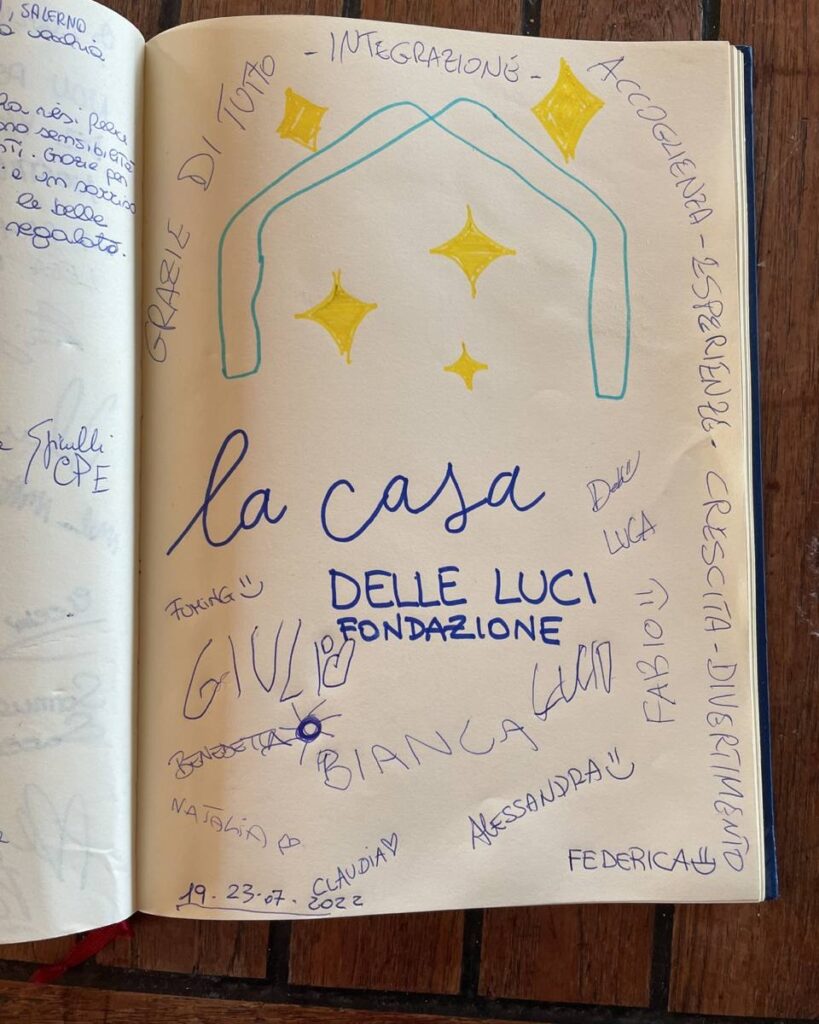 , SALERNO
vecchia
sensibilità
Grazie per
e un sorriso
le belle
regalato.
CPE
GRAZIE DI TUTTO - INTEGRAZIONE - ACCOGLIENZA - ESPERIENZE - CRESCITA - DIVERTIMENTO
la casa
DELLE LUCI
FONDAZIONE
LUCA
FABIO
GIULIO
LUCIO
BENEDETTA
BIANCA
NATALIA
ALESSANDRA
CLAUDIA
FEDERICA
19-23-07-2022